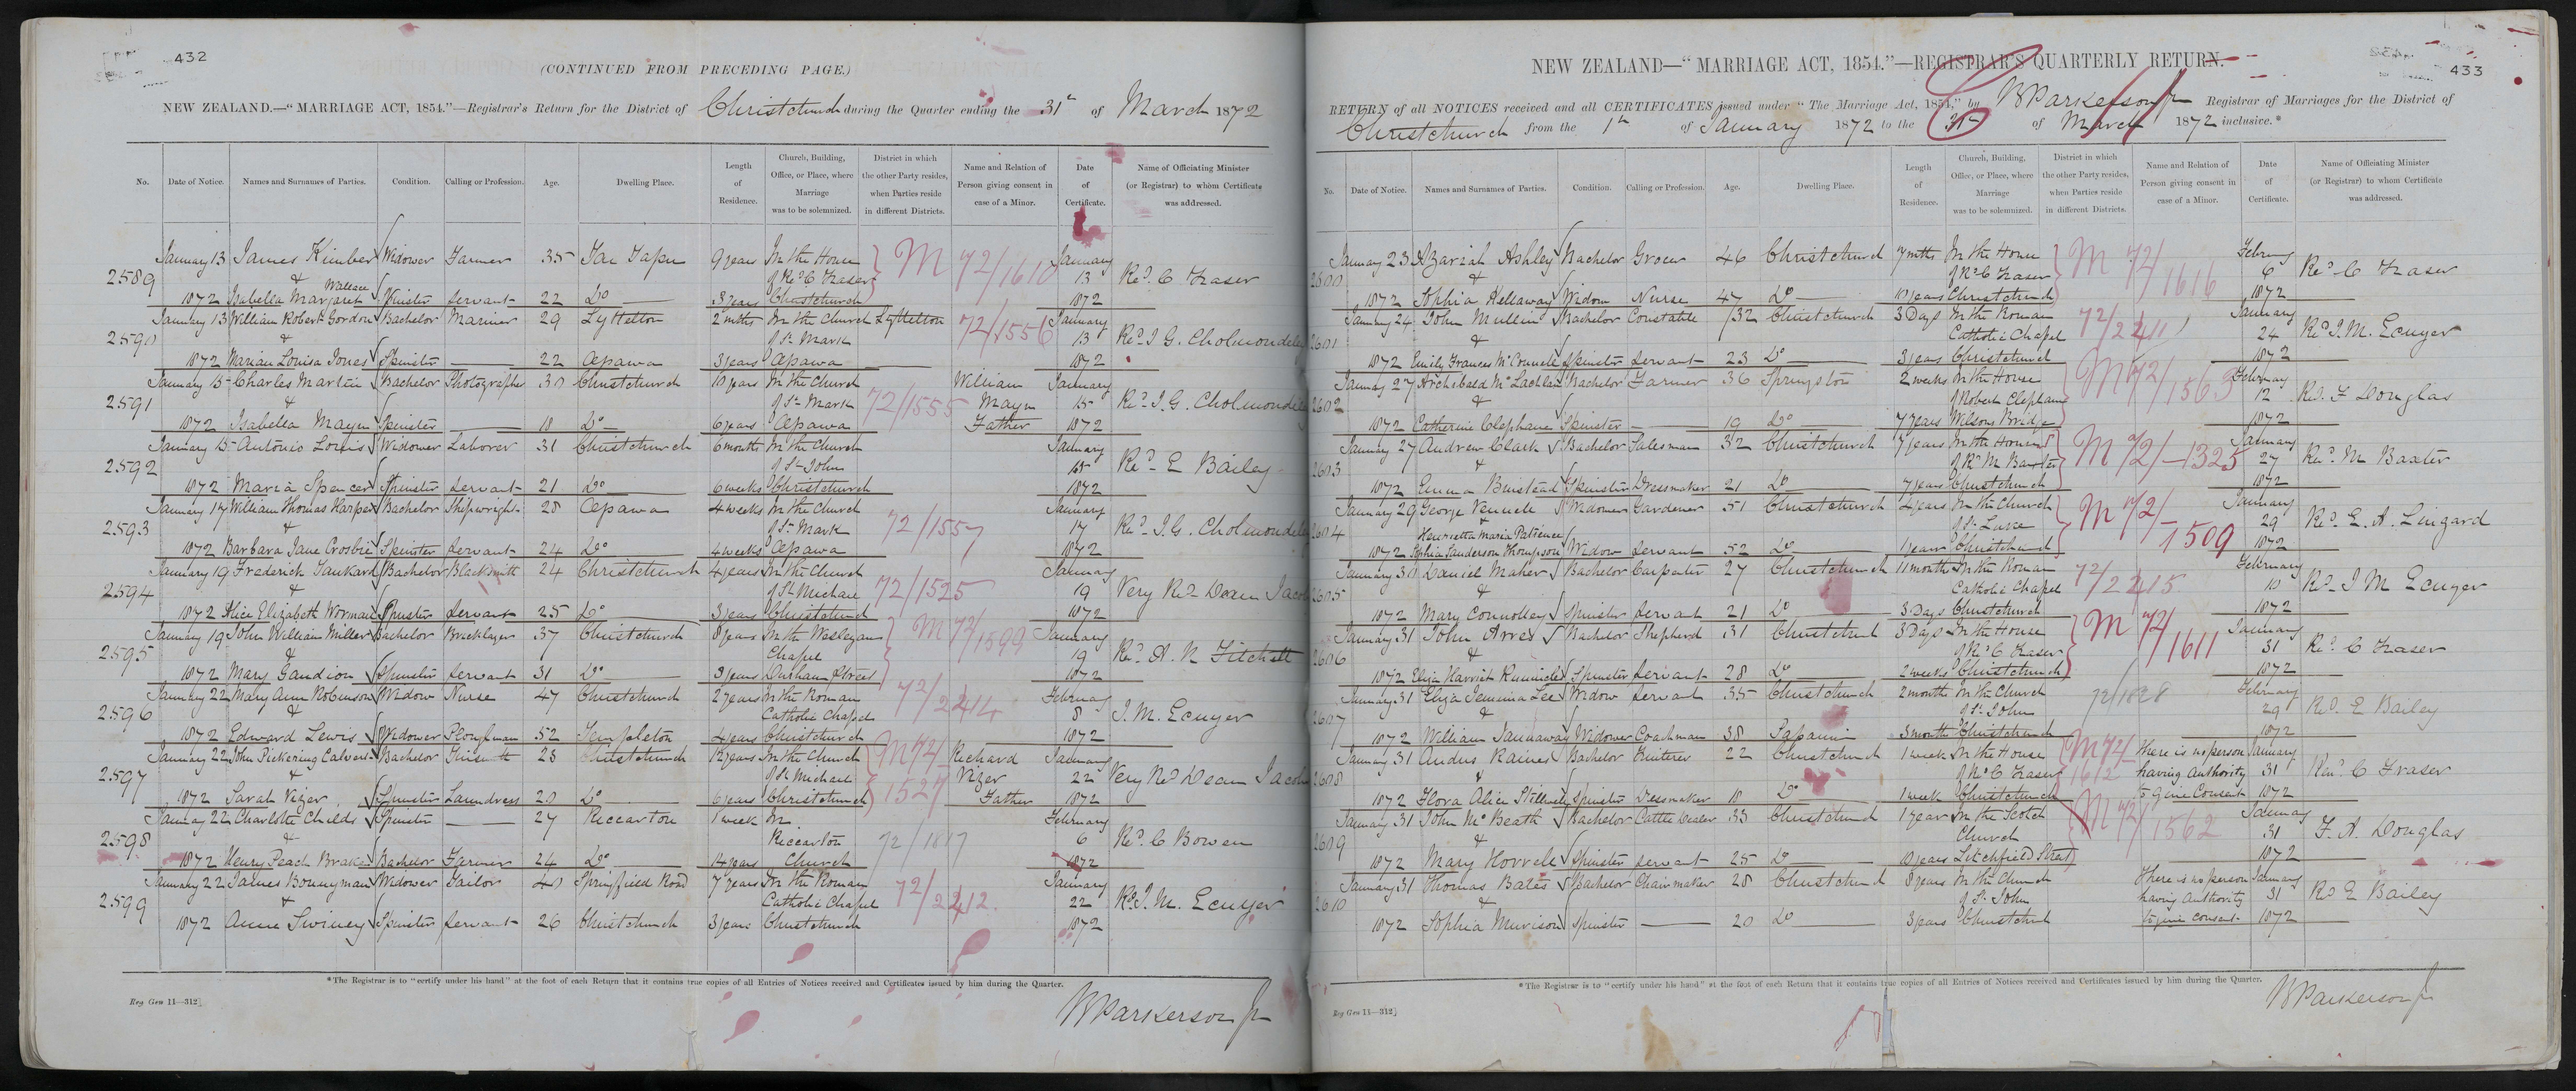 432
(CONTINUED FROM PRECEDING PAGE.)
NEW ZEALAND.—“MARRIAGE ACT, 1854.”—Registrar's Return for the District of Christchurch during the Quarter ending the 31st of March 1872
No. Date of Notice. Names and Surnames of Parties. Condition. Calling or Profession. Age. Dwelling Place. Length of Residence. Church, Building, Office, or Place, where Marriage was to be solemnized. District in which the other Party resides, when Parties reside in different Districts. Name and Relation of Person giving consent in case of a Minor. Date of Certificate. Name of Officiating Minister (or Registrar) to whom Certificate was addressed.
January 13 James Kimber Widower Farmer 35 Tai Tapu 9 years In the House January
2589 & of Revd C Fraser M 72/1610 13 Revd C Fraser
1872 Isabella Margaret Wallace Spinster Servant 22 Do 3 years Christchurch 1872
January 13 William Robert Gordon Bachelor Mariner 29 Lyttelton 2 mths In the Church Lyttelton 72/1556 January
2590 & of St Mark 13 Revd J G. Cholmondeley
1872 Marian Louisa Jones Spinster 22 Opawa 3 years Opawa 1872
January 15 Charles Martin Bachelor Photographer 30 Christchurch 10 years In the Church William January
2591 & of St Mark 72/1555 15 Revd J. G. Cholmondeley
1872 Isabella Spinster 18 Do 6 years Opawa Father 1872
January 15 Antonio Louis Widower Laborer 31 Christchurch 6 months In the Church January
2592 & of St John 15 Revd E Bailey
1872 Maria Spencer Spinster Servant 21 Do 6 weeks Christchurch 1872
January 17 William Thomas Harper Bachelor Shipwright 28 Opawa 4 weeks In the Church January
2593 & of St Mark 72/1557 17 Revd J. G. Cholmondeley
1872 Barbara Jane Crosbie Spinster Servant 24 Do 4 weeks Opawa 1872
January 19 Frederick Tankard Bachelor Blacksmith 24 Christchurch 4 years In the Church January
2594 & of St Michael 72/1525 19 Very Revd Dean Jacobs
1872 Alice Elizabeth Worman Spinster Servant 25 Do 3 years Christchurch 1872
January 19 John William Miller Bachelor Bricklayer 37 Christchurch 8 years In the Wesleyan M 72/1599 January
2595 & Chapel 19 Revd A. R Fitchett
1872 Mary Gaudion Spinster Servant 31 Do 3 years Durham Street 1872
January 22 Mary Ann Robinson Widow Nurse 47 Christchurch 2 years In the Roman February
2596 & Catholic Chapel 72/2214 8 J. M. Ecuyer
1872 Edward Lewis Widower Ploughman 52 Templeton 4 years Christchurch 1872
January 22 John Pickering Calvert Bachelor 23 Christchurch 12 years In the Church M 72/ Richard January
2597 & of St Michael 1527 Vizer 22 Very Revd Dean Jacobs
1872 Sarah Vizer Spinster Laundress 20 Do 6 years Christchurch Father 1872
January 22 Charlotte Childs Spinster 27 Riccarton 1 week In February
2598 & Riccarton 72/1817 6 Revd C Bowen
1872 Henry Peach Bachelor Farmer 24 Do 14 years Church 1872
January 22 James Bonnyman Widower Tailor 40 Springfield Road 7 years In the Roman January
2599 & Catholic Chapel 72/2212. 22 Revd J. M. Ecuyer
1872 Anne Swiney Spinster Servant 26 Christchurch 3 years Christchurch 1872
*The Registrar is to “certify under his hand” at the foot of each Return that it contains true copies of all Entries of Notices received and Certificates issued by him during the Quarter.
Reg Gen 11—312]
W Parkerson Jr
433
NEW ZEALAND—“MARRIAGE ACT, 1854.”—REGISTRAR'S QUARTERLY RETURN.
RETURN of all NOTICES received and all CERTIFICATES issued under “The Marriage Act, 1854,” by W Parkerson Jr Registrar of Marriages for the District of
Christchurch from the 1st of January 1872 to the 31st of March 1872 inclusive.*
No. Date of Notice. Names and Surnames of Parties. Condition. Calling or Profession. Age. Dwelling Place. Length of Residence. Church, Building, Office, or Place, where Marriage was to be solemnized. District in which the other Party resides, when Parties reside in different Districts. Name and Relation of Person giving consent in case of a Minor. Date of Certificate. Name of Officiating Minister (or Registrar) to whom Certificate was addressed.
January 23 Azariah Ashley Bachelor Grocer 46 Christchurch 7 mths In the House M 72/1616 February
2600 & of Revd C Fraser 6 Revd C Fraser
1872 Sophia Hellaway Widow Nurse 47 Do 10 years Christchurch 1872
January 24 John Mullin Bachelor Constable 32 Christchurch 3 Days In the Roman January
2601 & Catholic Chapel 72/2211 24 Revd J. M. Ecuyer
1872 Emily Frances McConnell Spinster Servant 23 Do 3 years Christchurch 1872
January 27 Archibald McLachlan Bachelor Farmer 36 Springston 2 weeks In the House M 72/1563 February
2602 & of Robert Clephane 12 Revd F Douglas
1872 Catherine Clephane Spinster 19 Do 7 years Wilsons Bridge 1872
January 27 Andrew Clark Bachelor Salesman 32 Christchurch 7 years In the House January
2603 & of Revd M Baxter M 72/1325 27 Revd M Baxter
1872 Emma Spinster Dressmaker 21 Do 7 years Christchurch 1872
January 29 George Vennell Widower Gardener 51 Christchurch 4 years In the Church January
2604 & of St Luke M 72/1509 29 Revd E. A. Lingard
1872 Henrietta Maria Patience Sophia Sanderson Thompson Widow Servant 52 Do 1 year Christchurch 1872
January 30 Daniel Maher Bachelor Carpenter 27 Christchurch 11 months In the Roman February
2605 & Catholic Chapel 72/2215 10 Revd J M Ecuyer
1872 Mary Connolley Spinster Servant 21 Do 3 Days Christchurch 1872
January 31 John Arres Bachelor Shepherd 31 Christchurch 3 Days In the House M 72/1611 January
2606 & of Revd C Fraser 31 Revd C Fraser
1872 Eliza Harriet Spinster Servant 28 Do 2 weeks Christchurch 1872
January 31 Eliza Jemima Lee Widow Servant 35 Christchurch 2 month In the Church 72/1828 February
2607 & of St John 29 Revd E Bailey
1872 William Widower Coachman 38 Papanui 3 month Christchurch 1872
January 31 Andus Raines Bachelor 22 Christchurch 1 week In the House M 72/ There is no person January
2608 & of Revd C Fraser 1612 having Authority 31 Revd C Fraser
1872 Flora Alice Spinster Dressmaker 18 Do 1 week Christchurch to give Consent 1872
January 31 John McBeath Bachelor Cattle Dealer 33 Christchurch 1 year In the Scotch M 72/1562 January
2609 & Church 31 F. A. Douglas
1872 Mary Horrell Spinster Servant 25 Do 10 years Litchfield Street 1872
January 31 Thomas Bates Bachelor Chairmaker 28 Christchurch 8 years In the Church There is no person January
2610 & of St John having Authority 31 Revd E Bailey
1872 Sophia Murison Spinster 20 Do 3 years Christchurch to give consent 1872
*The Registrar is to “certify under his hand” at the foot of each Return that it contains true copies of all Entries of Notices received and Certificates issued by him during the Quarter.
Reg Gen 11—312]
W Parkerson Jr